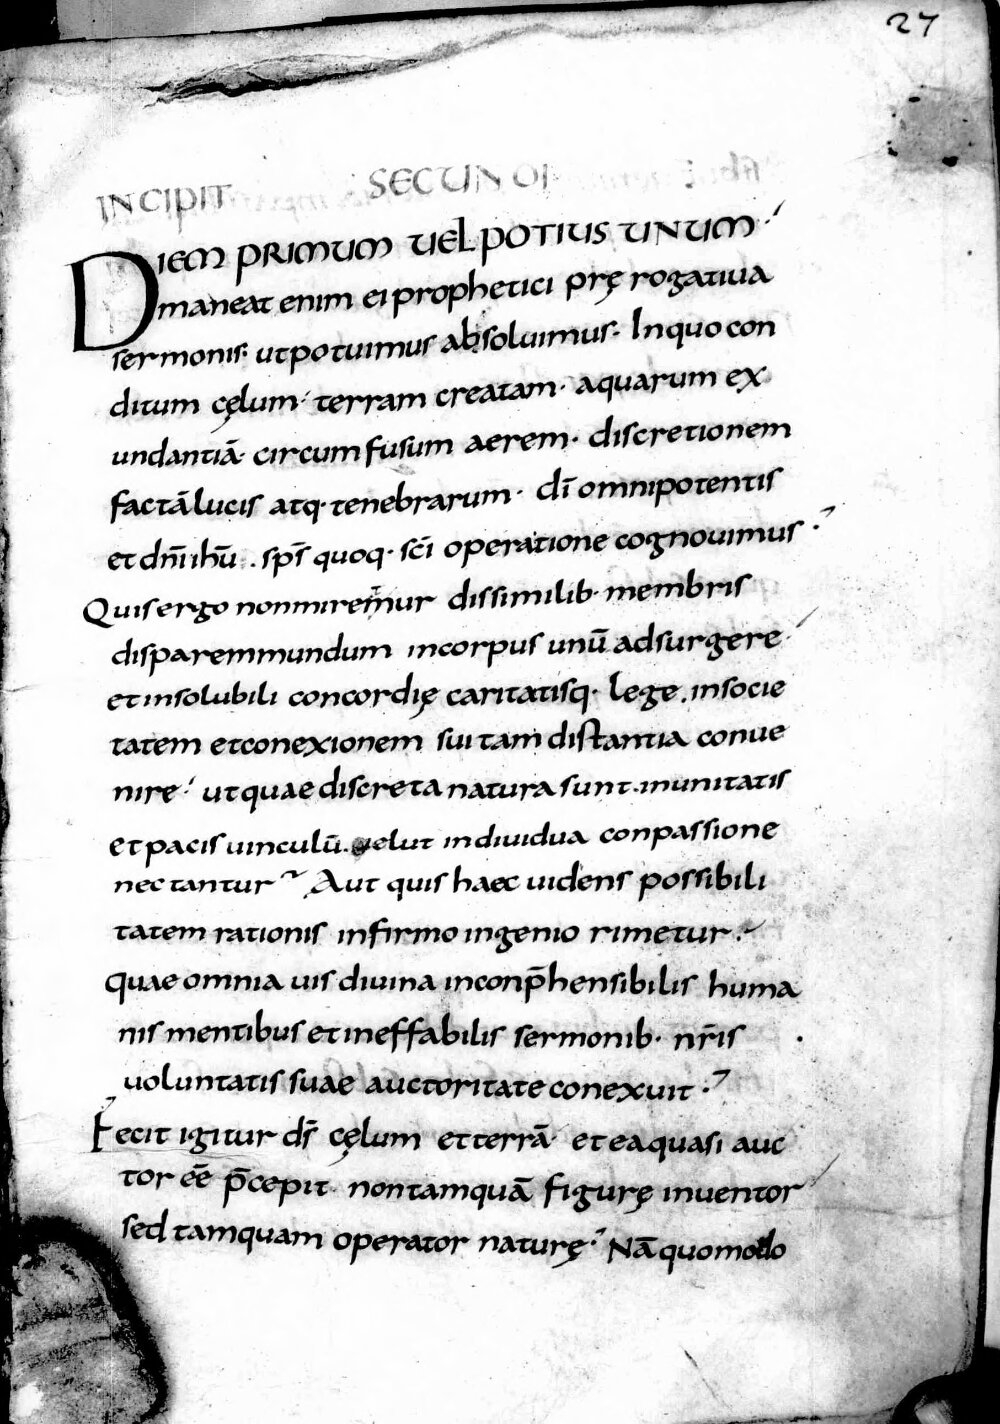 27
INCIPIT SECUNDI
DIEM PRIMUM UEL POTIUS UNUM
maneat enim ei prophetici prę rogatiua
sermonis· ut potuimus absoluimus· In quo con
ditum cęlum· terram creatam· aquarum ex
undantiā· circumfusum aerem· discretionem
factā lucis atq· tenebrarum· dī omnipotentis
et dn̄i ihū· sps̄ quoq· sc̄i operatione cognouimus·
Quis ergo non miremur dissimilib· membris
disparem mundum in corpus unū adsurgere
et insolubili concordię caritatisq· lege· in socie
tatem et conexionem sui tam distantia conue
nire· ut quae discreta natura sunt· in unitatis
et pacis uinculū· uelut indiuidua conpassione
nectantur Aut quis haec uidens possibili
tatem rationis infirmo ingenio rimetur·
quae omnia uis diuina inconp̄hensibilis huma
nis mentibus et ineffabilis sermonib· nr̄is
uoluntatis suae auctoritate conexuit·
Fecit igitur ds̄ cęlum et terrā· et ea quasi auc
tor eē p̄cepit· non tamquā figurę inuentor
sed tamquam operator naturę· Nā quomodo